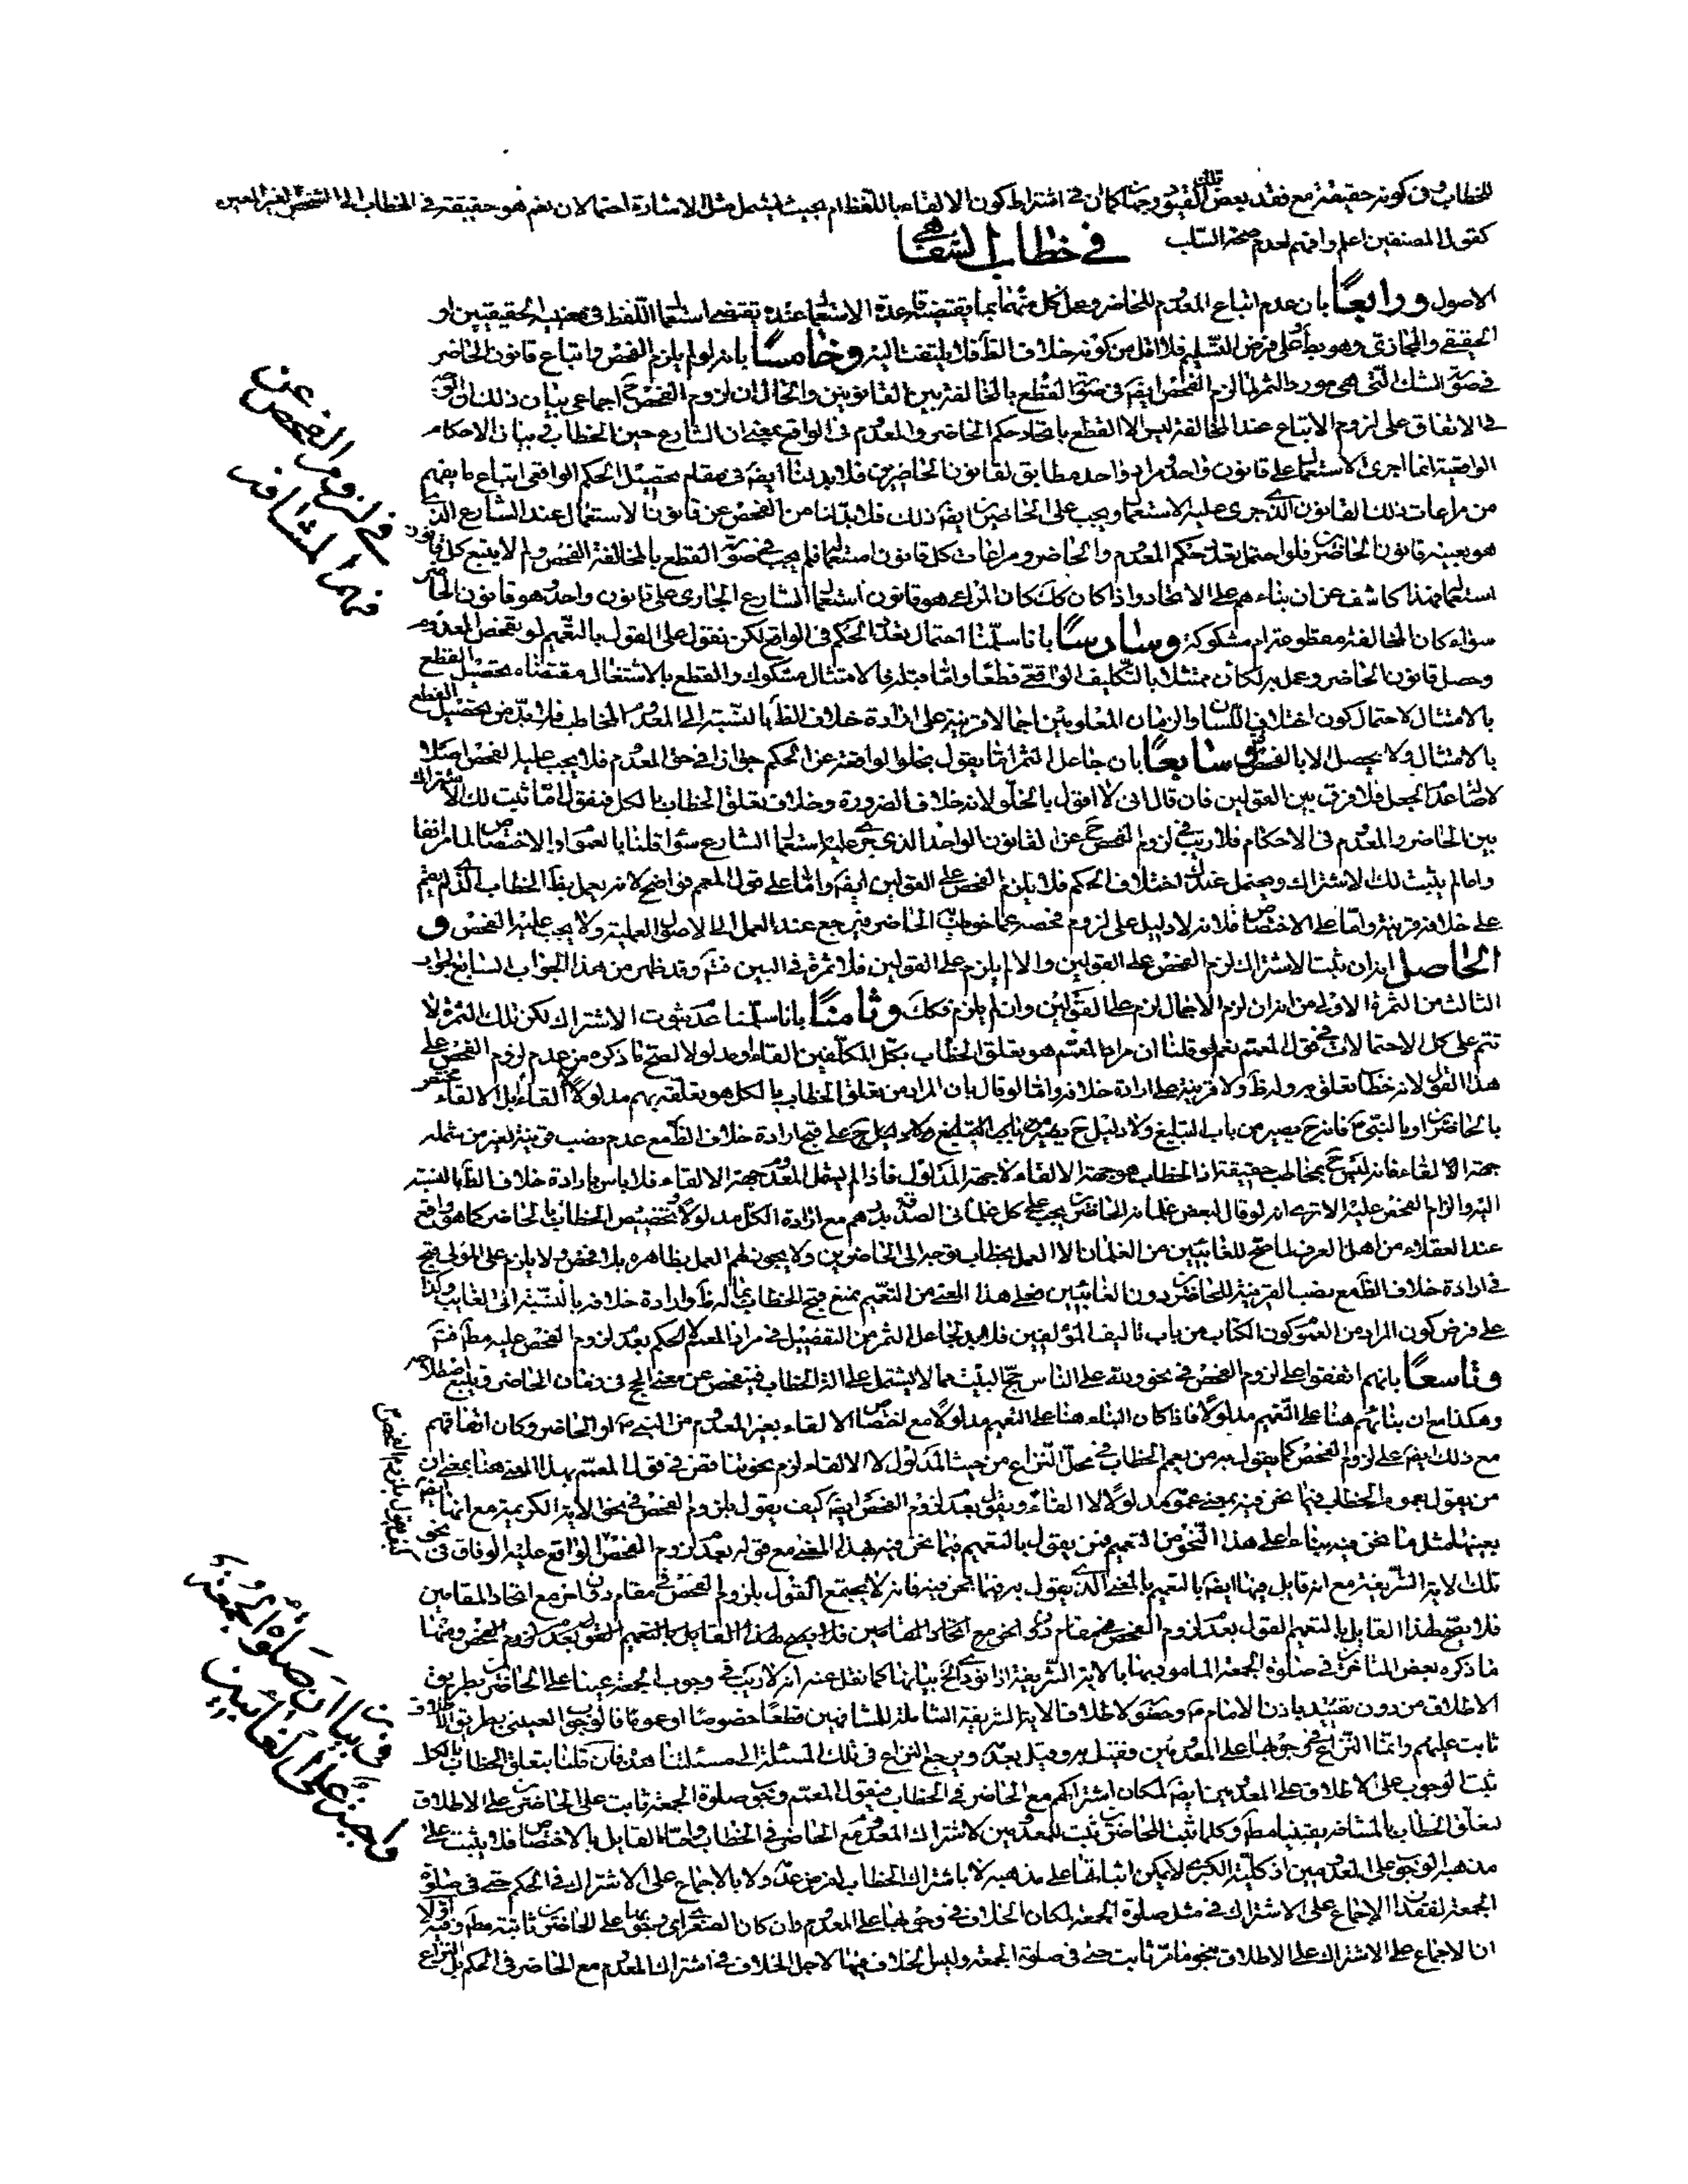 للخطاب في كونه حقيقة مع فقد بعض تلك القيود وجهان كما ان في اشتراط كون الالقاء باللفظ ام بحيث يشمل مثل الاشارة احتمالان نعم هو حقيقة في الخطاب الى الشخص الغير المعين
كقول المصنفين اعلم وافهم لعدم صحة السلب
في خطاب المشافهة
الاصول ورابعًا بان عدم اتباع المعدوم للحاضر وعمل كل منهما بما يقتضيه قاعدة الاستعمال عنده يقتضي استعمال اللفظ في معنييه الحقيقيين او
الحقيقي والمجازي وهو بط على فرض التسليم فلا اقل من كونه خلاف الظ فلا يلتفت اليه وخامسًا بانه لو لم يلزم الفحص واتباع قانون الحاضر
في صورة الشك التي هي مورد الثمرة لما لزم الفحص ايضا في صورة القطع بالمخالفة بين القانونين والحال ان لزوم الفحص ح اجماعي بيان ذلك ان
في الاتفاق على لزوم الاتباع عند المخالفة ليس الا القطع باتحاد حكم الحاضر والمعدوم في الواقع بمعنى ان الشارع حين الخطاب في بيان الاحكام
الواقعية انما اجرى الاستعمال على قانون واحد ومراد واحد مطابق لقانون الحاضرين فلا بد لنا ايضا في مقام تحصيل الحكم الواقعي اتباع ما يفهم
من مراعات ذلك القانون الذي جرى عليه الاستعمال ويجب على الحاضرين ايضا ذلك فلا بد لنا من الفحص عن قانون الاستعمال عند الشارع الذي
هو بعينه قانون الحاضرين فلو احتمل تعدد حكم المعدوم والحاضر ومراعات كل قانون استعماله فلم يجب في صورة القطع بالمخالفة الفحص ولم لا يتبع كل قانون
استعماله فهذا كاشف عن ان بناءهم على الاتحاد واذا كان كك كان المراعى هو قانون استعمال الشارع الجاري على قانون واحد هو قانون الحاضر
سواء كان المخالفة مقطوعة ام مشكوكة وسادسًا بانا سلمنا احتمال تعدد الحكم في الواقع لكن نقول على القول بالتعميم لو تفحص المعدوم
وحصل قانون الحاضر وعمل به لكان ممتثلا بالتكليف الواقعي قطعًا واما قبله فالامتثال مشكوك والقطع بالاشتغال مقتضاه تحصيل القطع
بالامتثال لاحتمال كون اختلاف اللسان والزمان المعلومين اجمالا قرينة على ارادة خلاف الظ بالنسبة الى المعدوم المخاطب فلا بد من تحصيل القطع
بالامتثال ولا يحصل الا بالفحص وسابعًا بان جاعل الثمرة اما يقول بخلو الواقعة عن الحكم جوازا في حق المعدوم فلا يجب عليه الفحص اصلا
فلا فرق بين القولين فان قال اني لا اقول بالخلو لانه خلاف الضرورة وخلاف تعلق الخطاب بالكل فنقول اما ثبت لك الاشتراك
بين الحاضر والمعدوم في الاحكام فلا ريب في لزوم الفحص ح عن القانون الواحد الذي جرى عليه استعمال الشارع سواء قلنا بالعموم او بالاختصاص لما مر انفا
واما لم يثبت لك الاشتراك ويحتمل عندك اختلاف الحكم فلا يلزم الفحص على القولين ايضا واما على قول المعمم فواضح لانه يعمل بظ الخطاب الذي لم يقم
على خلافه قرينة واما على الاختصاص فلانه لا دليل على لزوم فحصه عما خوطب الحاضر فيرجع عند العمل الى الاصول العملية ولا يجب عليه الفحص و
الحاصل انه ان ثبت الاشتراك لزم الفحص على القولين والا لم يلزم على القولين فلا ثمرة في البين فتم وقد ظهر من هذا الجواب السابع الجواب
الثالث من الثمرة الاولى من انه ان لزم الاجمال لزم على القولين وان لم يلزم فكك وثامنًا بانا سلمنا عدم ثبوت الاشتراك لكن تلك الثمرة لا
تتم على كل الاحتمالات في قول المعمم نعم لو قلنا ان مراد المعمم هو تعلق الخطاب بكل المكلفين القاء ومدلولا لصح ما ذكره من عدم لزوم الفحص على
هذا القول لانه خطاب تعلق به وله ظ ولا قرينة على ارادة خلافه واما لو قال بان المراد من تعلق الخطاب بالكل هو تعلقه بهم مدلولا لا القاء بل الالقاء مختص
بالحاضرين او بالنبي ص فانه ح يصير من باب التبليغ ولا دليل ح على قبح ارادة خلاف الظ مع عدم نصب قرينة لغير من شمله
جهة الالقاء فانه ليس ح بمخاطب حقيقة اذ الخطاب هو جهة الالقاء لا جهة المدلول فاذا لم يشمل المعدوم جهة الالقاء فلا باس بارادة خلاف الظ بالنسبة
اليه والزام الفحص عليه الا ترى انه لو قال لبعض غلمانه الحاضرين يجب على كل غلماني الصدقة بدرهم مع ارادة الكل مدلولا وتخصيص الخطاب بالحاضر كما هو واقع
عند العقلاء من اهل العرف لما صح للغائبين من الغلمان الا العمل بخطاب توجه الى الحاضرين ولا يجوز لهم العمل بظاهره بلا فحص ولا يلزم على المولى قبح
في ارادة خلاف الظ مع نصب القرينة للحاضرين دون الغائبين فعلى هذا المعنى من التعميم نمنع قبح الخطاب بما له ظ وارادة خلافه بالنسبة الى الغايب وكذا
على فرض كون المراد من العموم كون الكتاب من باب تاليف المؤلفين فلا بد لجاعل الثمرة من التفصيل في مراد المعمم لا الحكم بعدم لزوم الفحص عليه مط فتم
وتاسعًا بانهم اتفقوا على لزوم الفحص في نحو ولله على الناس حج البيت مما لا يشتمل على الة الخطاب فيتفحص عن معنى الحج في زمان الحاضر ويتبع اصطلاحه
وهكذا مع ان بنائهم هنا على التعميم مدلولا فاذا كان البناء هنا على التعميم مدلولا مع اختصاص الالقاء بغير المعدوم من النبي ص او الحاضر وكان اتفاقهم
مع ذلك ايضا على لزوم الفحص كما يقول به من يعمم الخطاب في محل النزاع من حيث المدلول لا الالقاء لزم نحو تناقض في قول المعمم بهذا المعنى هنا بمعنى ان
من يقول بعموم الخطاب فيما نحن فيه بمعنى عمومه مدلولا لا القاء ويقول بعدم لزوم الفحص ايضا كيف يقول بلزوم الفحص في نحو الاية الكريمة مع انها ايضا
بعينها مثل ما نحن فيه بناء على هذا النحو من التعميم فمن يقول بالتعميم فيما نحن فيه بهذا المعنى مع قوله بعدم لزوم الفحص الواقع عليه الوفاق في نحو
تلك الاية الشريفة مع انه قايل فيها ايضا بالتعميم بالمعنى الذي يقول به فيما نحن فيه فانه لا يجتمع القول بلزوم الفحص في مقام دون اخر مع اتحاد المقامين
فلا يصح لهذا القايل بالتعميم القول بعدم لزوم الفحص في مقام دون اخر مع اتحاد المقامين فلا يصح لهذا القايل بالتعميم القول بعدم لزوم الفحص ومنها
ما ذكره بعض المتاخرين في صلوة الجمعة المامور بها بالاية الشريفة اذا نودي الخ بيانها كما نقل عنه انه لا ريب في وجوب الجمعة عينا على الحاضرين بطريق
الاطلاق من دون تقييد باذن الامام ع الاية الشريفة الشاملة للمشافهين قطعًا خصوصًا او عمومًا فالوجوب العيني بطريق الاطلاق
ثابت عليهم وانما النزاع في وجوبها على المعدومين فقيل به وقيل بعدمه ويرجع النزاع في تلك المسئلة الى مسئلتنا هذه فان قلنا بتعلق الخطاب بالكل
ثبت الوجوب على الاطلاق على المعدومين ايضا لمكان اشتراكهم مع الحاضر في الخطاب فيقول المعمم وجوب صلوة الجمعة ثابت على الحاضرين على الاطلاق
لتعلق الخطاب بالمشافه يقينا مط وكلما ثبت للحاضرين ثبت للمعدومين لاشتراك المعدوم مع الحاضر في الخطاب واما القايل بالاختصاص فلا يثبت على
مذهبه الوجوب على المعدومين اذ كلية الكبرى لا يمكن اثباتها على مذهبه لا باشتراك الخطاب لفرض عدمه ولا بالاجماع على الاشتراك في الحكم حتى في صلوة
الجمعة لفقد الاجماع على الاشتراك في مثل صلوة الجمعة لمكان الخلاف في وجوبها على المعدوم وان كان الصغرى اي وجوبها على الحاضرين ثابتة مط وفيه اولا
ان الاجماع على الاشتراك على الاطلاق بنحو ما مر ثابت حتى في صلوة الجمعة وليس الخلاف فيها لاجل الخلاف في اشتراك المعدوم مع الحاضر في الحكم بل النزاع
في لزوم الفحص عن
فهم المشافه
في بيان صلوة الجمعة
واجبة على الغائبين